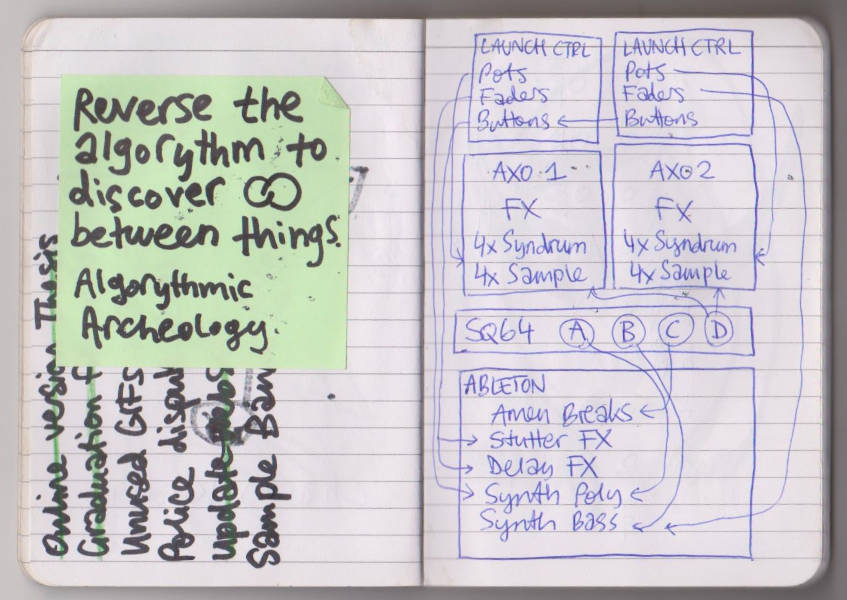 Reverse the
algorythm to
discover
between things.
Algorythmic
Archeology.
Online version Thesis
Graduation
Unused GIFs
Police
Update
Sample
LAUNCH CTRL
Pots
Faders
Buttons
LAUNCH CTRL
Pots
Faders
Buttons
AXO 1
FX
4x Syndrum
4x Sample
AXO 2
FX
4x Syndrum
4x Sample
SQ64 A B C D
ABLETON
Amen Breaks
Stutter FX
Delay FX
Synth Poly
Synth Bass